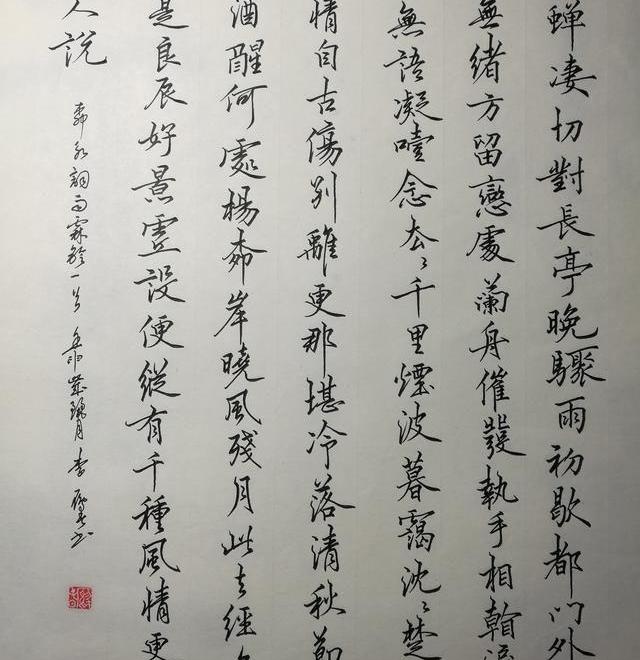 蟬凄切對長亭晚驟雨初歇都門外
無緒方留戀處蘭舟催發執手相
無語凝噎念去々千里煙波暮靄沈々楚
情自古傷別離更那堪冷落清秋節
酒醒何處楊柳岸曉風殘月此去經
是良辰好景虛設便縱有千種風情更
人說
柳永詞雨霖鈴一首 月李书